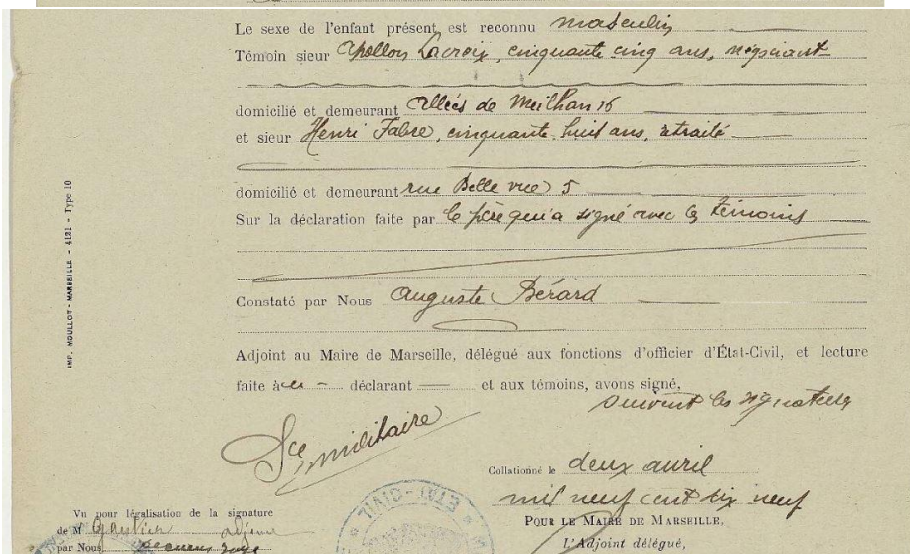 Le sexe de l'enfant présent est reconnu masculin
Témoin sieur Apollon Lacroix, cinquante cinq ans, négociant
domicilié et demeurant allées de Meilhan 15
et sieur Henri Fabre, cinquante huit ans, retraité
domicilié et demeurant rue Belle vue 5
Sur la déclaration faite par le père qui a signé avec les témoins
Constaté par Nous Auguste Bérard
Adjoint au Maire de Marseille, délégué aux fonctions d'officier d'État-Civil, et lecture
faite à u - déclarant — et aux témoins, avons signé,
suivent les signatures
Sce militaire
Collationné le deux avril
mil neuf cent dix neuf
POUR LE MAIRE DE MARSEILLE,
L'Adjoint délégué,
Vu pour légalisation de la signature
de M
par Nous
ETAT-CIVIL
IMP. MOULLOT - MARSEILLE - 4121 - Type 10